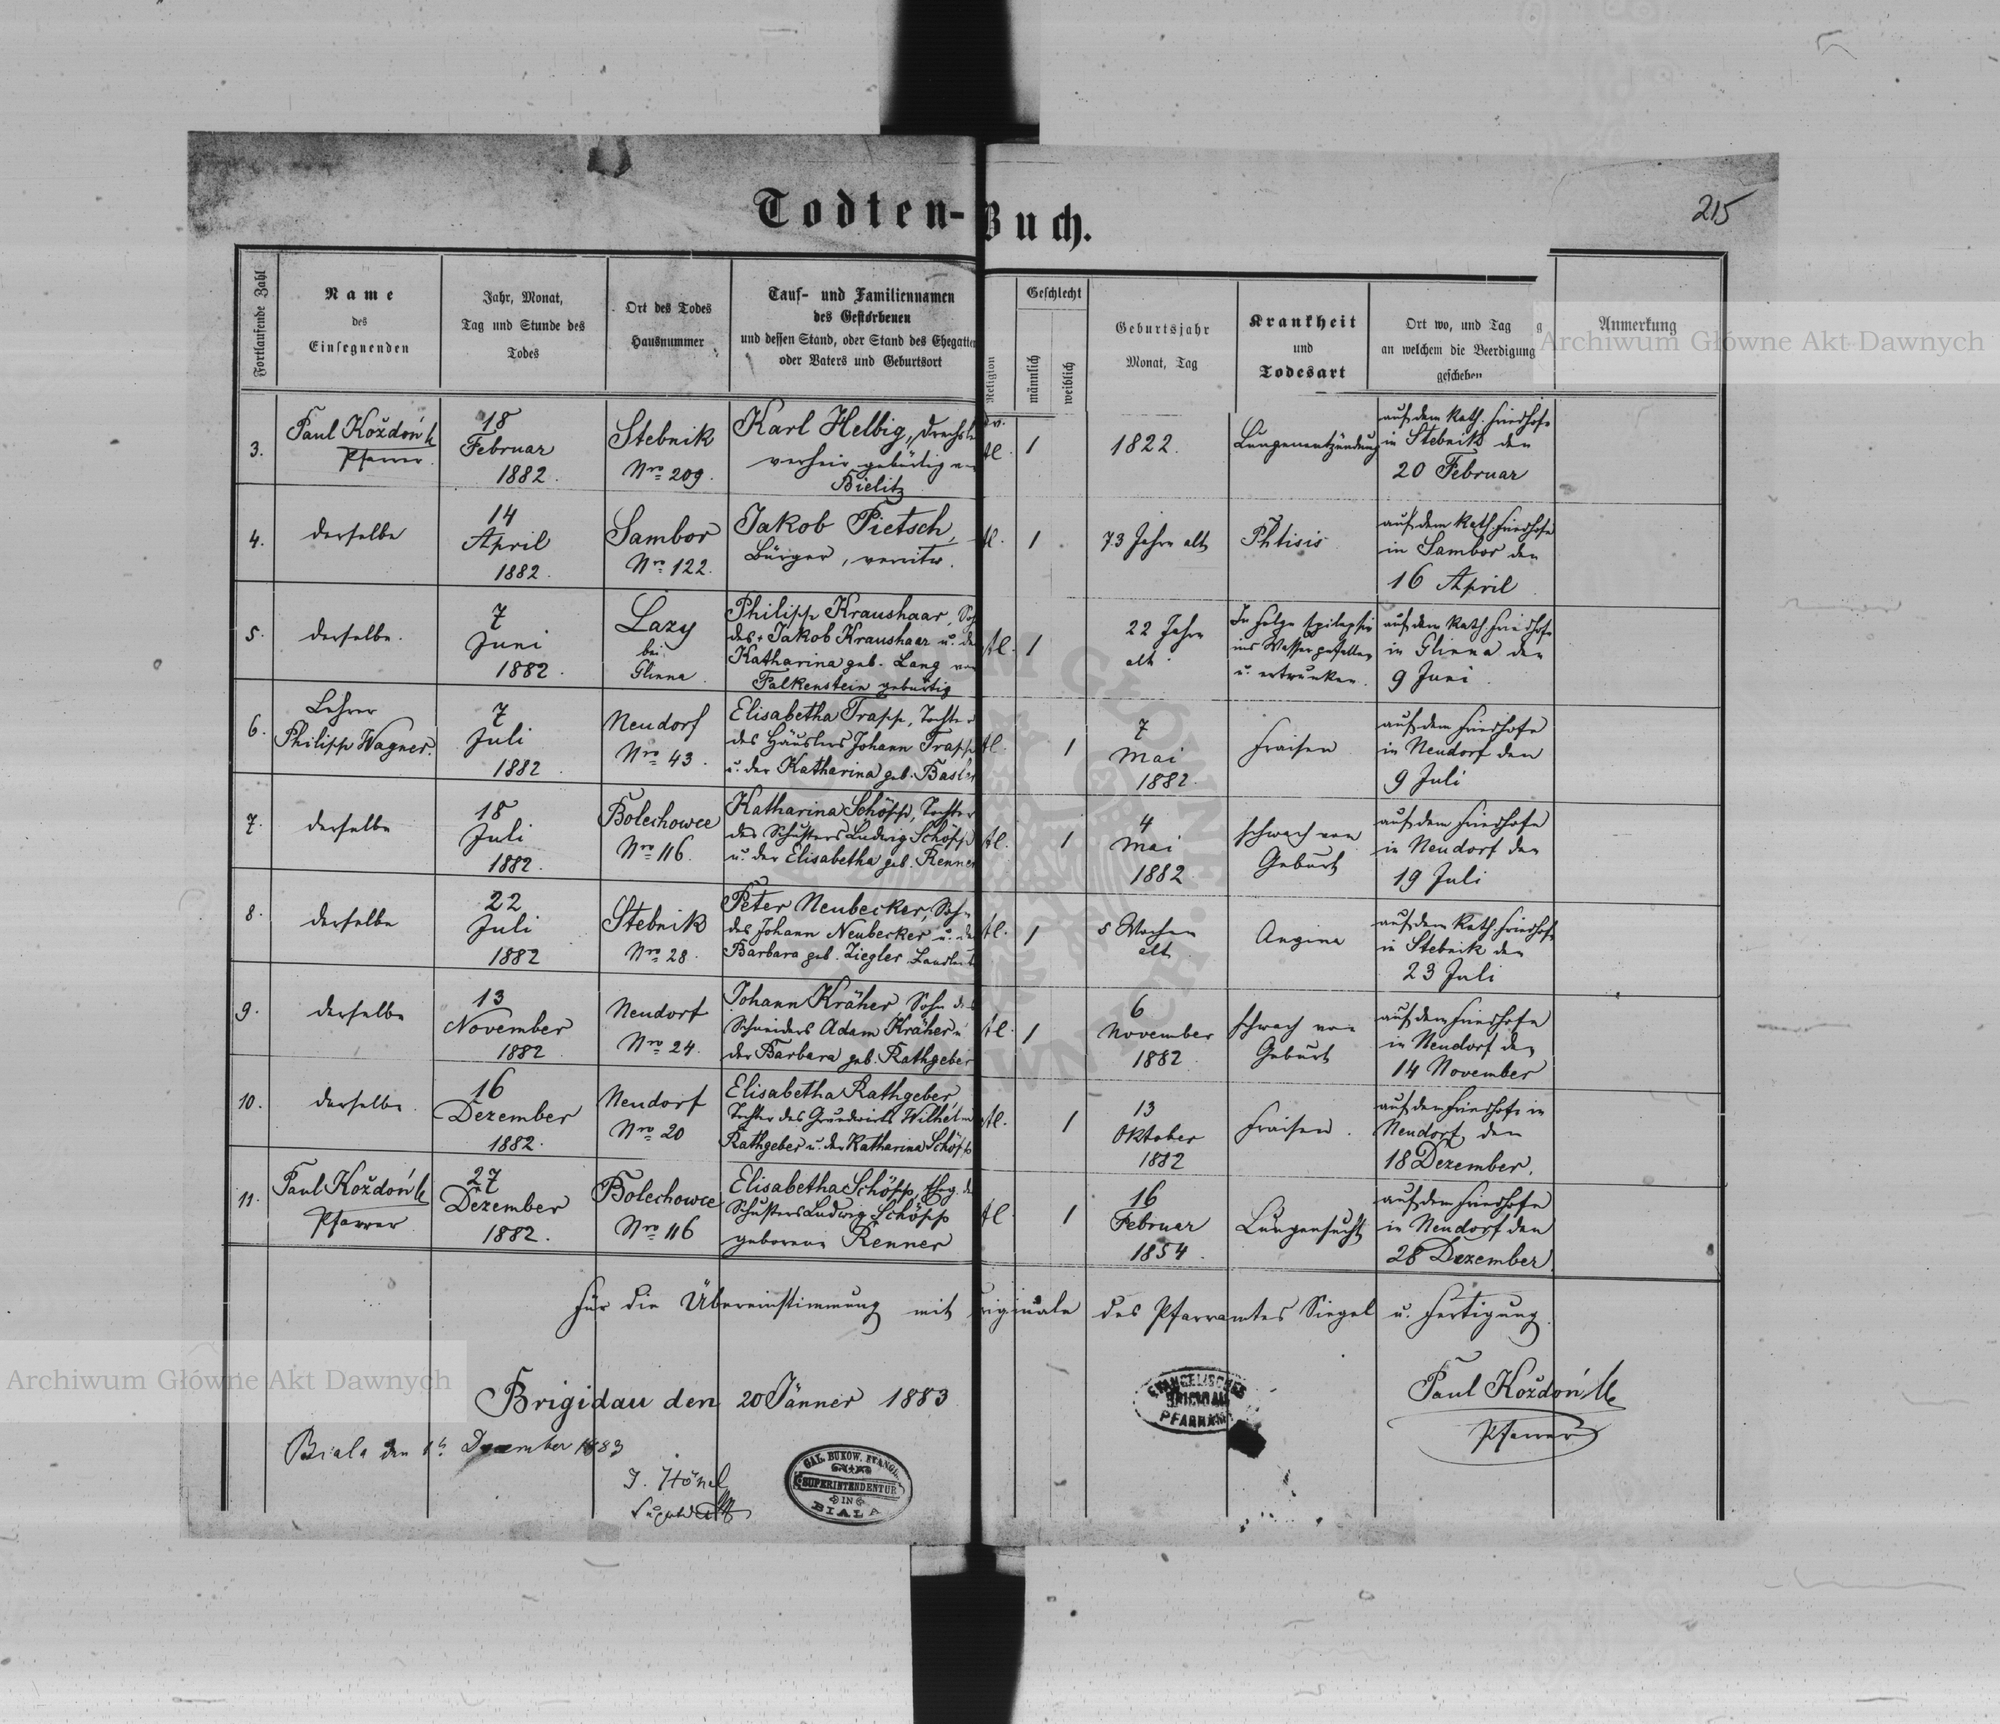 Todten-Buch.
215
Fortlaufende Zahl
Name
des
Einsegnenden
Jahr, Monat,
Tag und Stunde des
Todes
Ort des Todes
Hausnummer
Tauf- und Familiennamen
des Gestorbenen
und dessen Stand, oder Stand des Ehegatten
oder Vaters und Geburtsort
Religion
Geschlecht
männlich
weiblich
Geburtsjahr
Monat, Tag
Krankheit
und
Todesart
Ort wo, und Tag
an welchem die Beerdigung
geschehen
Anmerkung
3.
Paul Koždoń
Pfarrer.
18
Februar
1882.
Stebnik
Nro 209.
Karl Helbig, Drechsler
verheir. gebürtig
Bielitz
1
1822.
Lungenentzündung
auf dem kath. Friedhofe
in Stebnik den
20 Februar
4.
derselbe
14
April
1882.
Sambor
Nro 122.
Jakob Pietsch,
Bürger, verwitw.
1
73 Jahre alt
Phtisis
auf dem kath. Friedhofe
in Sambor den
16 April
5.
derselbe.
7
Juni
1882.
Lazy
bei
Glinna.
Philipp Kraushaar, Sohn
des + Jakob Kraushaar u. der
Katharina geb. Lang von
Falkenstein gebürtig
1
22 Jahre
alt.
In Folge Epilepsie
ins Wasser gefallen
u. ertrunken.
auf dem kath. Friedhofe
in Glinna den
9 Juni.
6.
Lehrer
Philipp Wagner.
7
Juli
1882.
Neudorf
Nro 43.
Elisabetha Trapp, Tochter
des Häuslers Johann Trapp
u. der Katharina geb.
1
7
Mai
1882.
Fraisen
auf dem Friedhofe
in Neudorf den
9 Juli
7.
derselbe
18
Juli
1882.
Bolechowce
Nro 116.
Katharina Schöpp, Tochter
des Schusters Ludwig Schöpp
u. der Elisabetha geb. Renner
1
4
Mai
1882
schwach von
Geburt
auf dem Friedhofe
in Neudorf den
19 Juli
8.
derselbe
22
Juli
1882
Stebnik
Nro 28.
Peter Neubecker, Sohn
des Johann Neubecker u. der
Barbara geb. Ziegler Landleute
1
5 Wochen
alt
Angina
auf dem kath. Friedhofe
in Stebnik den
23 Juli
9.
derselbe
13
November
1882
Neudorf
Nro 24.
Johann Kräher Sohn des
Schneiders Adam Kräher u.
der Barbara geb. Rathgeber
1
6
November
1882
schwach von
Geburt
auf dem Friedhofe
in Neudorf den
14 November
10.
derselbe.
16
Dezember
1882.
Neudorf
Nro 20
Elisabetha Rathgeber
Tochter des Grundwirts Wilhelm
Rathgeber u. der Katharina Schöpp
1
13
Oktober
1882
Fraisen.
auf dem Friedhofe in
Neudorf, den
18 Dezember.
11.
Paul Koždoń
Pfarrer
27
Dezember
1882.
Bolechowce
Nro 116
Elisabetha Schöpp, Eheg. des
Schusters Ludwig Schöpp
geborene Renner
1
16
Februar
1854.
Lungensucht
auf dem Friedhofe
in Neudorf den
28 Dezember
Für die Übereinstimmung mit Originale des Pfarramtes Siegel u. Fertigung.
Brigidau den 20 Jänner 1883
Paul Koždoń
Pfarrer
EVANGELISCHES
BRIGIDAU
PFARRAMT
Biala den 1ten Dezember 1883
J. Hönel
GAL. BUKOW. EVANGL.
SUPERINTENDENTUR
IN
BIALA
Archiwum Główne Akt Dawnych
Archiwum Główne Akt Dawnych